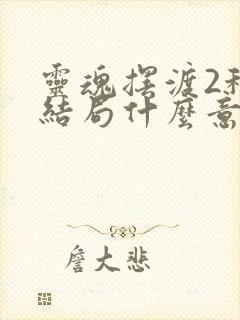 靈魂擺渡2
結局什麼意
詹大悲